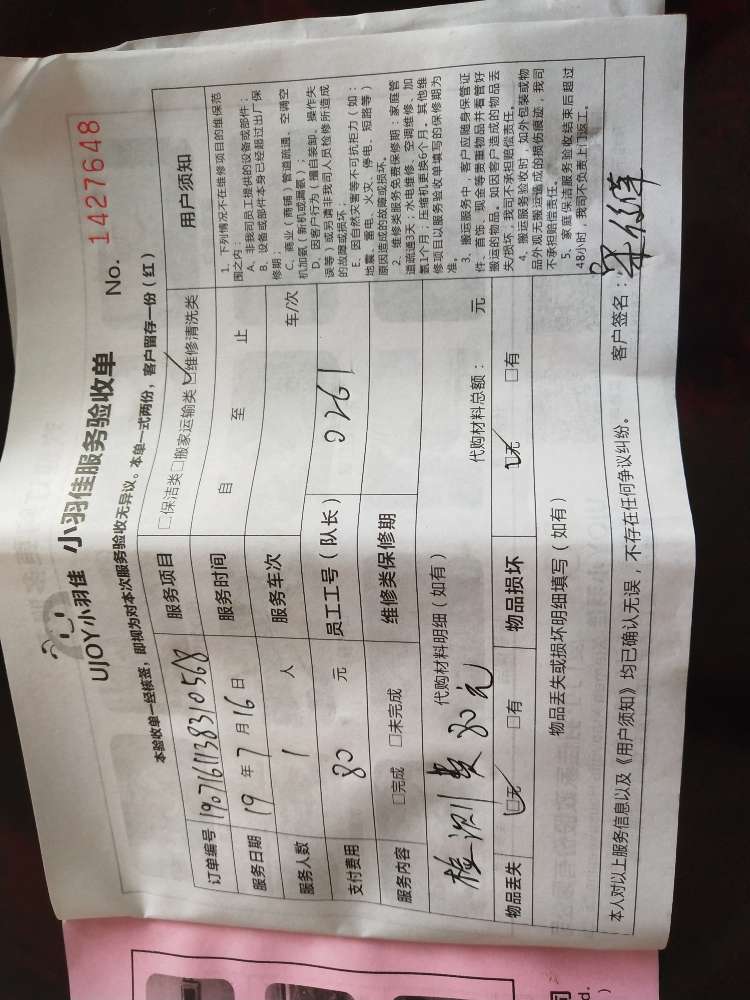 No. 1427648
UJOY小羽佳 小羽佳服务验收单
本验收单一经核签，即视为对本次服务验收无异议。本单一式两份，客户留存一份（红）
订单编号 190716113831​0568
服务项目 □保洁类□搬家运输类☑维修清洗类
服务日期 19年7月16日
服务时间 自 至 止
服务人数 1 人
服务车次 车/次
支付费用 80 元
员工工号（队长） 0261
服务内容 □完成 □未完成
维修类保修期
检测费80元
代购材料明细（如有） 代购材料总额： 元
物品丢失 ☑无 □有
物品损坏 ☑无 □有
物品丢失或损坏明细填写（如有）
用户须知
1、下列情况不在维修项目的维保范
围之内：
A、非我司员工提供的设备或部件；
B、设备或部件本身已经超过出厂保
修期；
C、商业（商铺）管道疏通、空调空
机加氨（新机或漏氨）；
D、因客户行为（擅自装卸、操作失
误等）或另请非我司人员检修所造成
的故障或损坏；
E、因自然灾害等不可抗拒力（如：
地震、雷电、火灾、停电、短路等）
原因造成的故障或损坏。
2、维修类服务免费保修期：家庭管
道疏通3天；水电维修、空调维修、加
氨1个月；压缩机更换6个月。其他维
修项目以服务验收单填写的保修期为
准。
3、搬运服务中，客户应随身保管证
件、首饰、现金等贵重物品并看管好
搬运的物品。如因客户造成的物品丢
失/损坏，我司不承担赔偿责任。
4、搬运服务验收时，如外包装或物
品外观无搬运造成的损伤痕迹，我司
不承担赔偿责任。
5、家庭保洁服务验收结束后超过
48小时，我司不负责上门返工。
本人对以上服务信息以及《用户须知》均已确认无误，不存在任何争议纠纷。 客户签名：